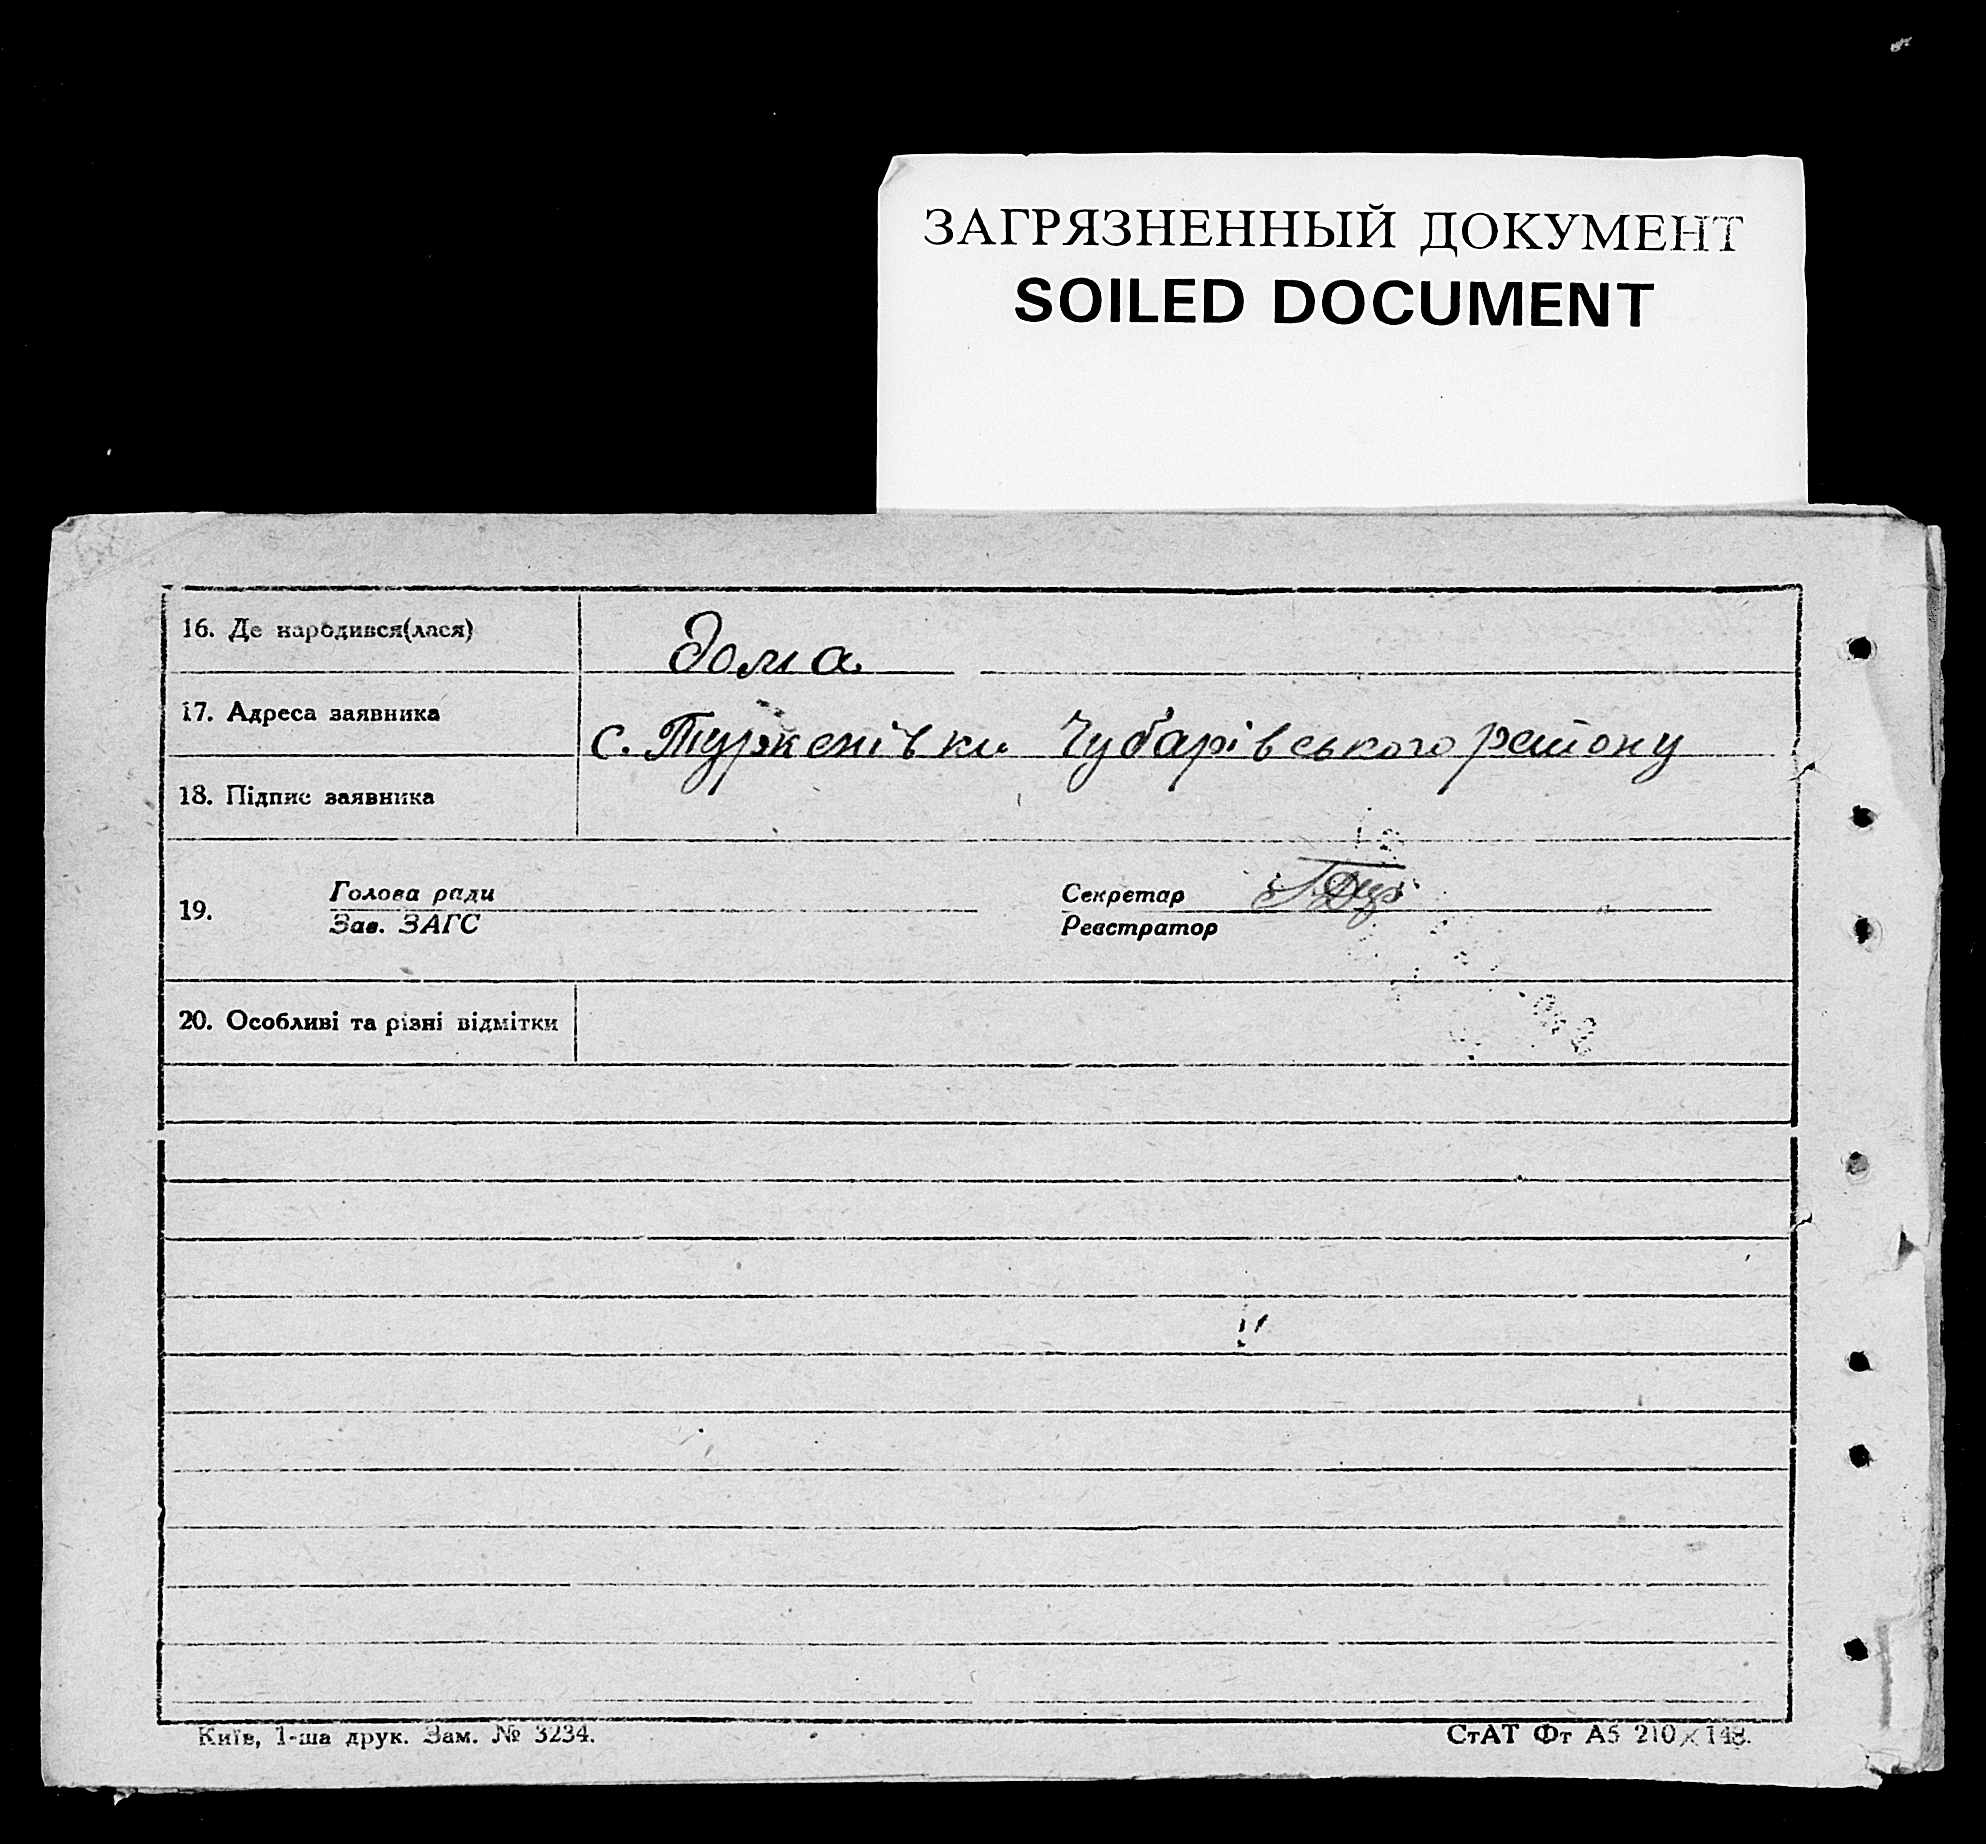 ЗАГРЯЗНЕННЫЙ ДОКУМЕНТ
SOILED DOCUMENT
16. Де народився(лася) дома
17. Адреса заявника с. Туркенівки Чубарівського району
18. Підпис заявника
19. Голова ради Секретар
Зав. ЗАГС Реєстратор
20. Особливі та різні відмітки
Київ, 1-ша друк. Зам. № 3234. СтАТ Фт А5 210×148.